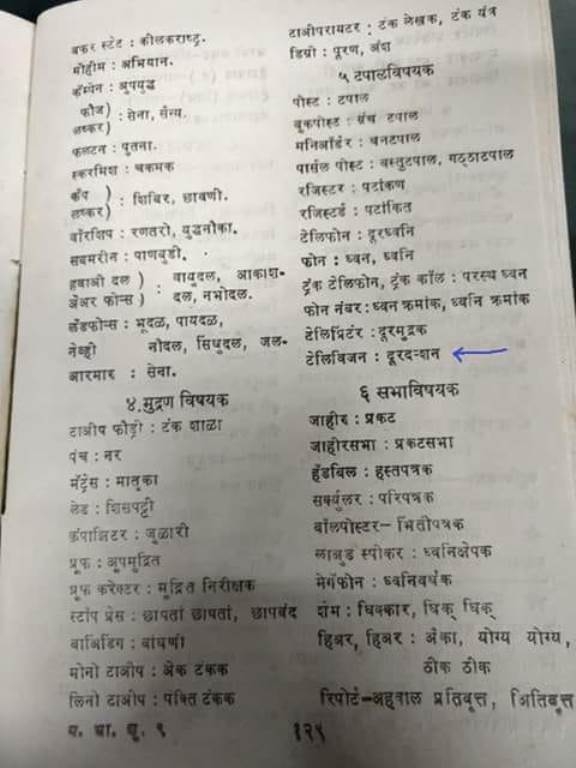 बफर स्टेट : कीलकराष्ट्र.
मोहीम : अभियान.
कँम्पेन : अुपयुद्ध
फौज)
लष्कर) : सेना, सैन्य.
फलटन : पृतना.
स्करमिश : चकमक
कँप )
लष्कर) : शिबिर, छावणी.
वॉरशिप : रणतरी, युद्धनौका.
सबमरीन : पाणबुडी.
हवाओ दल ) वायुदल, आकाश-
अेअर फोर्स ) : दल, नभोदल.
लँडफोर्स : भूदळ, पायदळ,
नेव्ही नौदल, सिंधुदल, जल-
आरमार : सेना.
४.मुद्रण विषयक
टाअीप फौंड्री : टंक शाळा
पंच : नर
मॅट्रेस : मातृका
लेड : शिसपट्टी
कंपाझिटर : जुळारी
प्रूफ : अूपमुद्रित
प्रूफ करेक्टर : मुद्रित निरीक्षक
स्टॉप प्रेस : छापतां छापतां, छापबंद
बाअिंडिंग : बांधणी
मोनो टाअीप : अेक टंकक
लिनो टाअीप : पंक्ति टंकक
टाअीपरायटर : टंक लेखक, टंक यंत्र
डिग्री : पूरण, अंश
५ टपालविषयक
पोस्ट : टपाल
बूकपोस्ट : ग्रंथ टपाल
मनिऑर्डर : धनटपाल
पार्सल पोस्ट : वस्तुटपाल, गठ्ठाटपाल
रजिस्टर : पटांकण
रजिस्टर्ड : पटांकित
टेलिफोन : दूरध्वनि
फोन : ध्वन, ध्वनि
ट्रंक टेलिफोन, ट्रंक कॉल : परस्थ ध्वन
फोन नंबर : ध्वन क्रमांक, ध्वनि क्रमांक
टेलिप्रिंटर : दूरमुद्रक
टेलिविजन : दूरदर्शन
६ सभाविषयक
जाहीर : प्रकट
जाहीरसभा : प्रकटसभा
हँडबिल : हस्तपत्रक
सर्क्युलर : परिपत्रक
वॉलपोस्टर- भित्तीपत्रक
लाअुड स्पीकर : ध्वनिक्षेपक
मेगॅफोन : ध्वनिवर्धक
शेम : धिक्कार, धिक् धिक्
हिअर, हिअर : अैका, योग्य योग्य,
ठीक ठीक
रिपोर्ट-अहवाल प्रतिवृत्त, अितिवृत्त
१२९